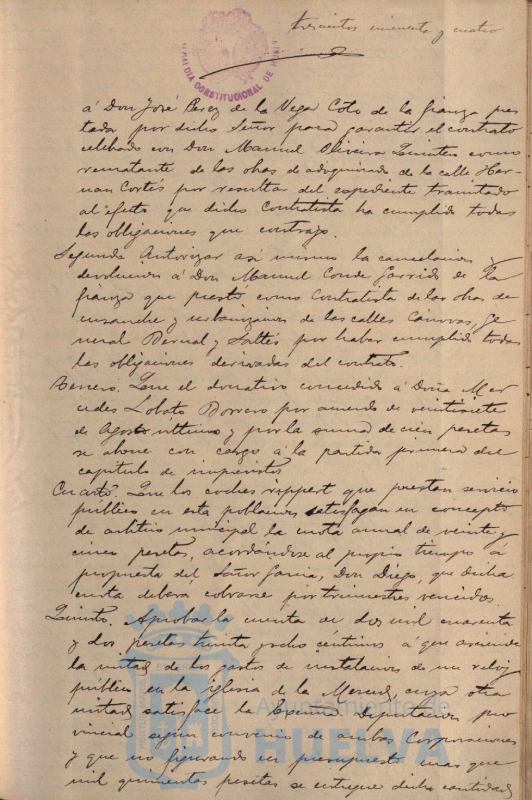 trescientos cincuenta y cuatro
ALCALDIA CONSTITUCIONAL DE
á Don José Perez de la Vega Coto de la fianza pres
tada por dicho Señor para garantir el contrato
celebrado con Don Manuel Oliveira Quintero como
rematante de las obras de adoquinado de la calle Her-
nan Cortés por resultar del expediente tramitado
al efecto que dicho Contratista ha cumplido todas
las obligaciones que contrajo.
Segundo Autorizar asi mismo la cancelacion y
devolucion á Don Manuel Conde Garrido de la
fianza que prestó como Contratista de las obras de
ensanche y urbanizacion de las calles Cánovas, Ge
neral Bernal y Saltés por haber cumplido todas
las obligaciones derivadas del contrato.
Tercero. Que el donativo concedido á Doña Mer
cedes Lobato Borrero por acuerdo de veintisiete
de Agosto último y por la suma de cien pesetas
se abone con cargo á la partida primera del
capitulo de imprevistos
Cuarto. Que los coches rippert que prestan servicio
público en esta poblacion satisfagan en concepto
de arbitrio municipal la cuota anual de veinte y
cinco pesetas, acordándose al propio tiempo á
propuesta del Señor Garcia, Don Diego, que dicha
cuota debera cobrarse por trimestres vencidos.
Quinto. Aprobar la cuenta de dos mil cuarenta
y dos pesetas treinta y ocho céntimos á que asciende
la mitad de los gastos de instalacion de un reloj
público en la iglesia de la Merced, cuya otra
mitad satisface la Excma Diputacion pro
vincial segun convenio de ambas Corporaciones
y que no figurando en presupuesto mas que
mil quinientas pesetas se entregue dicha cantidad
Ayuntamiento de
HUELVA